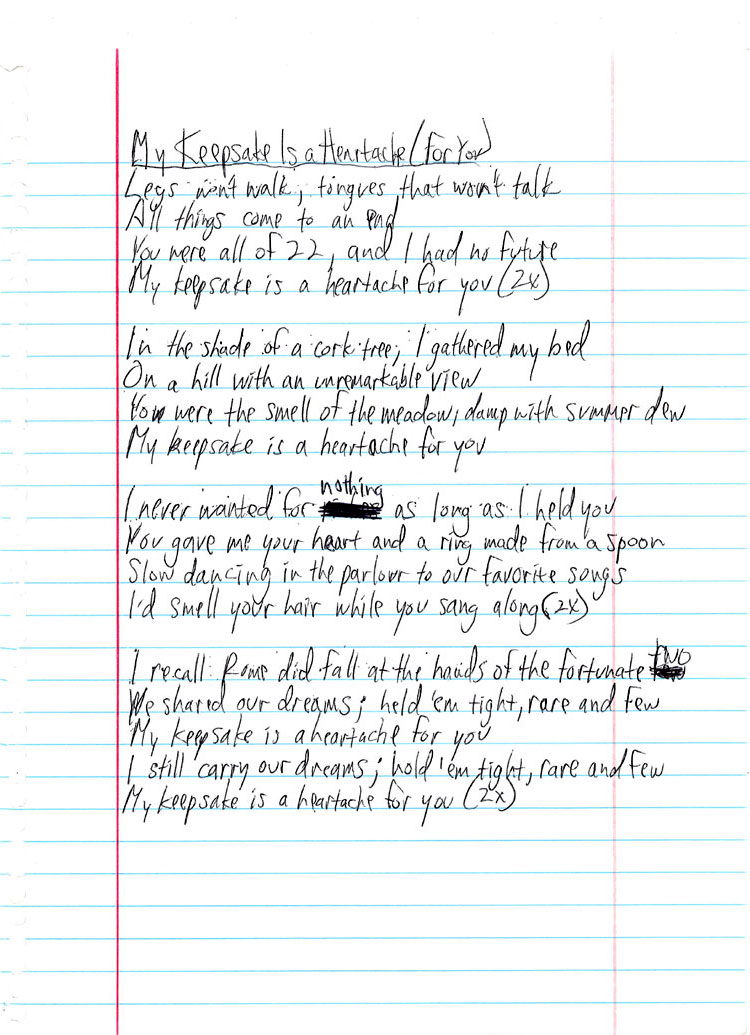 My Keepsake Is a Heartache (For You)
Legs won't walk, tongues that won't talk
All things come to an end
You were all of 22, and I had no future
My keepsake is a heartache for you (2x)
In the shade of a cork tree, I gathered my bed
On a hill with an unremarkable view
You were the smell of the meadow, damp with summer dew
My keepsake is a heartache for you
I never wanted for nothing as long as I held you
You gave me your heart and a ring made from a spoon
Slow dancing in the parlour to our favorite songs
I'd smell your hair while you sang along (2x)
I recall Rome did fall at the hands of the fortunate two
We shared our dreams; held 'em tight, rare and few
My keepsake is a heartache for you
I still carry our dreams; hold 'em tight, rare and few
My keepsake is a heartache for you (2x)